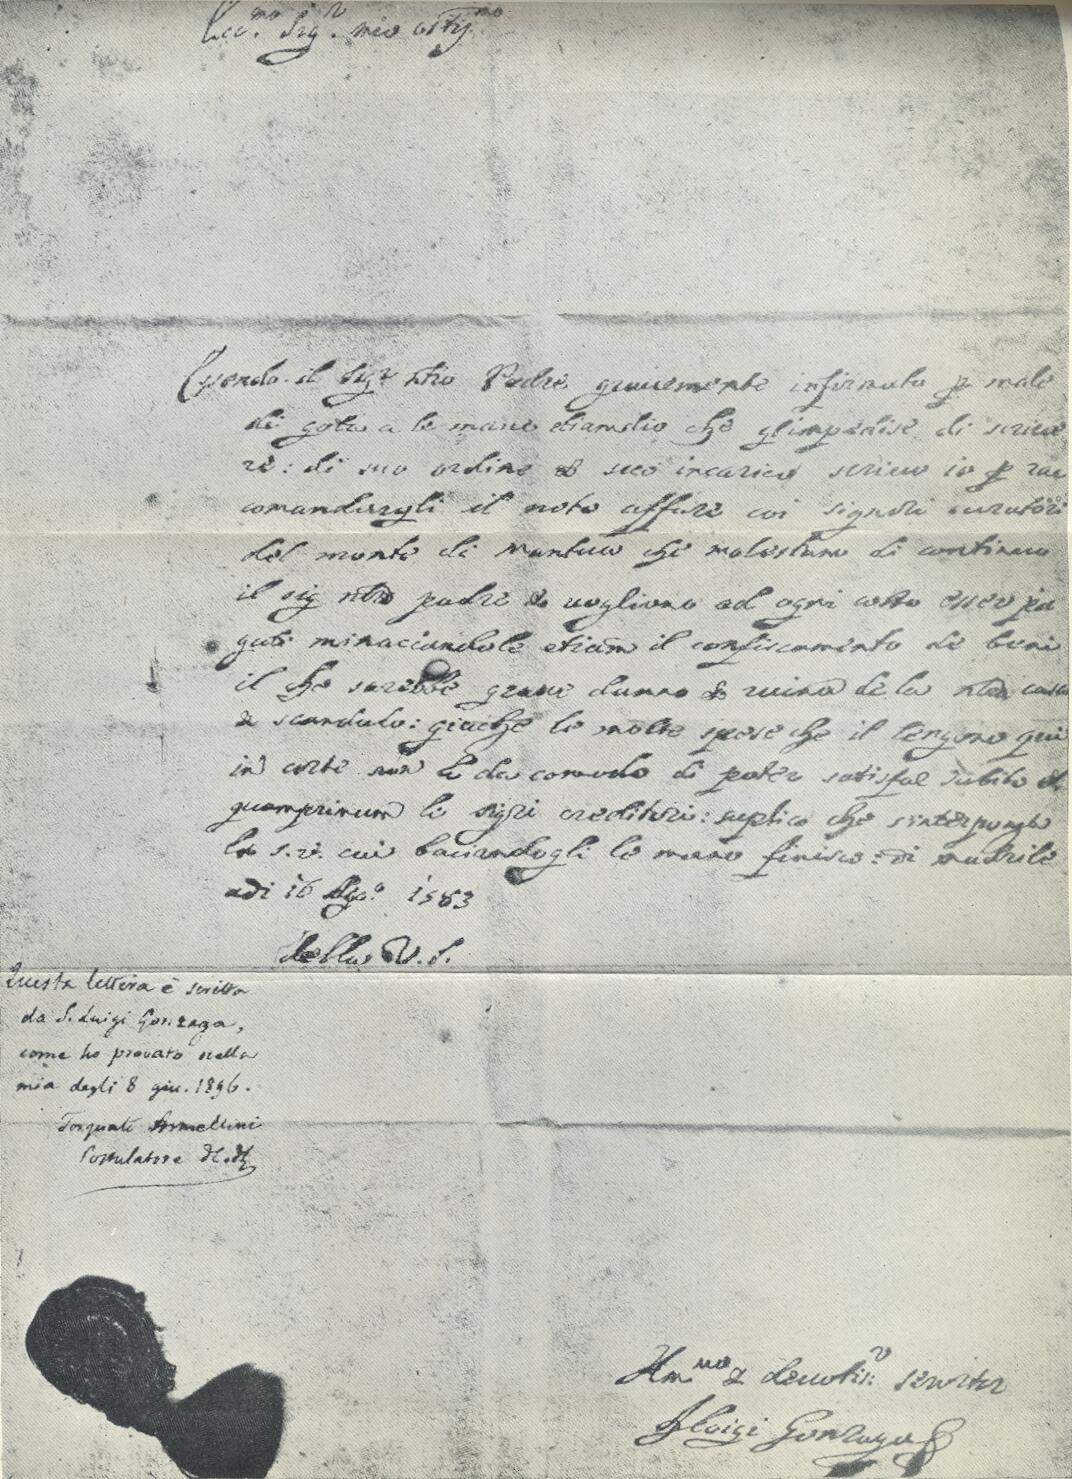 Ecc.mo Sig.r mio oss.mo
Essendo il Sigr nro Padre gravemente infirmato p male
di gota a le mane etiamdio che glimpedise di scrive
re: di suo ordine & suo incarico scrivo io p rac
comandargli il noto affare coi signori curatori
del monte di Mantua che molestano di continuo
il sig nro padre & vogliono ad ogni costo esser pa
gati minaciandole etiam il confiscamento de beni
il che sarebbe grave danno & ruina de la nra casa
& scandalo: giache le molte spese che il tengono qui
in corte non li da comodo di poter satisfar subito et
quamprimum li sigri creditori: suplico che s'interponga
la s.v. cui baciandogli le mano finisco: di madrile
adi 16 Ago.o 1583
della V.S.
Questa lettera è scritta
da S. Luigi Gonzaga,
come ho provato nella
mia degli 8 giu. 1896.
Torquato Armellini
Postulatore
Hm.mo & devotis: servitor
Aloigi Gonzaga